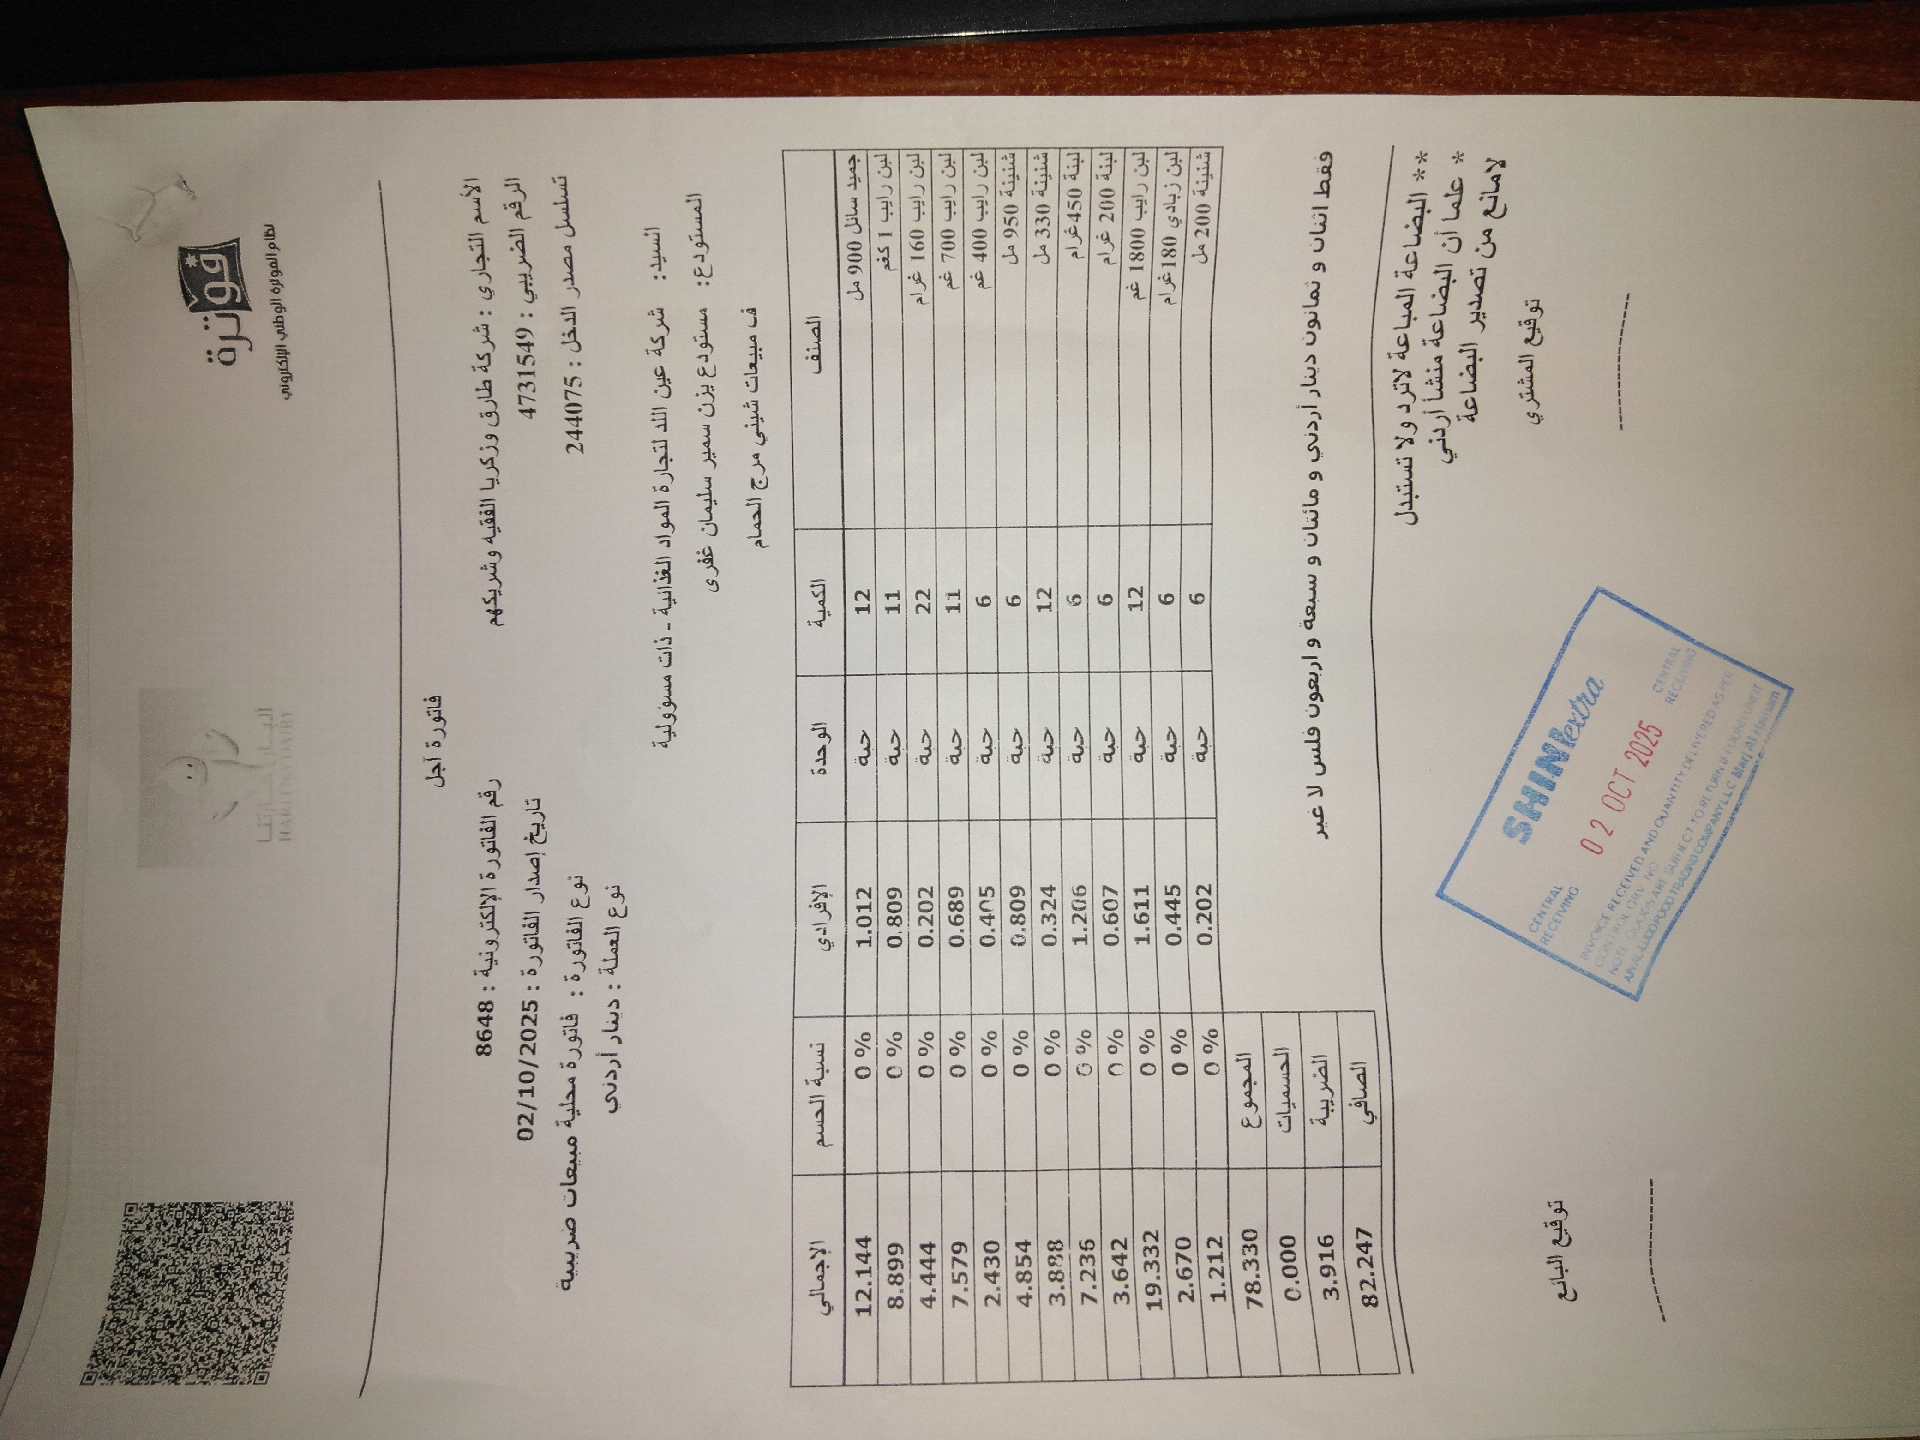 فوترة
نظام الفوترة الوطني الإلكتروني
HARETNA DAIRY
فاتورة آجل
الأسم التجاري : شركة طارق وزكريا الفقيه وشريكهم
رقم الفاتورة الإلكترونية : 8648
الرقم الضريبي : 4731549
تاريخ إصدار الفاتورة : 02/10/2025
تسلسل مصدر الدخل : 244075
نوع الفاتورة : فاتورة محلية مبيعات ضريبية
نوع العملة : دينار أردني
السيد: شركة عين اللد لتجارة المواد الغذائية - ذات مسؤولية
المستودع: مستودع يزن سمير سليمان غفرى
ف مبيعات شيني مرج الحمام
الصنف الكمية الوحدة الإفرادي نسبة الحسم الإجمالي
جميد سائل 900 مل 12 حبة 1.012 0 % 12.144
لبن رايب 1 كغم 11 حبة 0.809 0 % 8.899
لبن رايب 160 غرام 22 حبة 0.202 0 % 4.444
لبن رايب 700 غم 11 حبة 0.689 0 % 7.579
لبن رايب 400 غم 6 حبة 0.405 0 % 2.430
شنينة 950 مل 6 حبة 0.809 0 % 4.854
شنينة 330 مل 12 حبة 0.324 0 % 3.888
لبنة 450 غرام 6 حبة 1.206 0 % 7.236
لبنة 200 غرام 6 حبة 0.607 0 % 3.642
لبن رايب 1800 غم 12 حبة 1.611 0 % 19.332
لبن زبادي 180 غرام 6 حبة 0.445 0 % 2.670
شنينة 200 مل 6 حبة 0.202 0 % 1.212
المجموع 78.330
الحسميات 0.000
الضريبة 3.916
الصافي 82.247
فقط اثنان و ثمانون دينار أردني و مائتان و سبعة و اربعون فلس لا غير
** البضاعة المباعة لاترد ولا تستبدل
* علما أن البضاعة منشأ أردني
لامانع من تصدير البضاعة
توقيع المشتري
توقيع البائع
SHINI extra
CENTRAL RECEIVING
02 OCT 2025
CENTRAL RECEIVING
INVOICE RECEIVED AND QUANTITY DELIVERED AS PER
CONTROL GRV. NO
NOTE GOODS ARE SUBJECT TO RETURN IF FOUND UNFIT
AIN ALLOD FOOD TRADING COMPANY LLC Marj Al Hamam